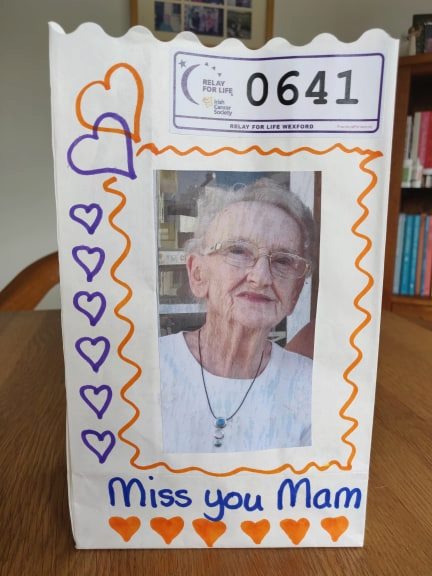 RELAY
FOR LIFE
Irish
Cancer
Society
0641
RELAY FOR LIFE WEXFORD
Miss you Mam